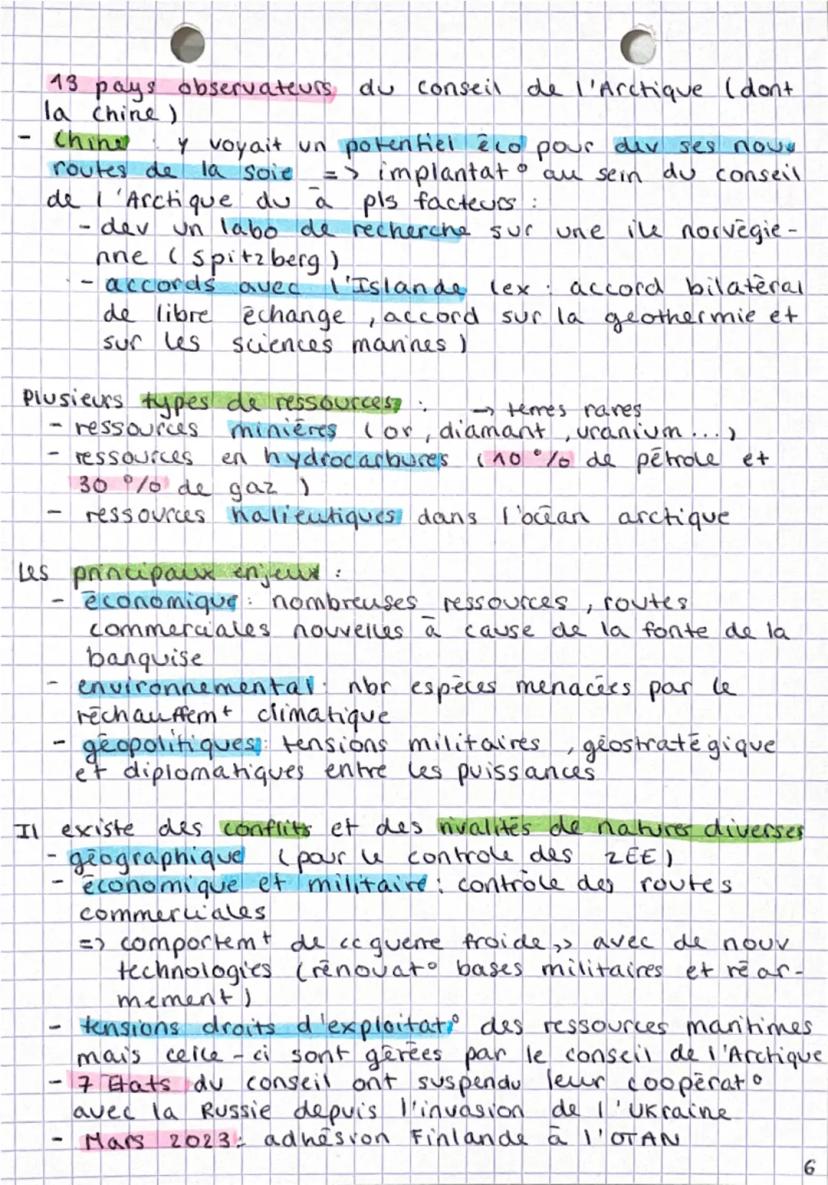 13 pays observateurs du conseil de l'Arctique (dont
la chine)
- Chine : y voyait un potentiel éco pour dev ses nouv
routes de la soie => implantat° au sein du conseil
de l'Arctique du à pls facteurs :
- dev un labo de recherche sur une ile norvégie-
nne (Spitzberg)
- accords avec l'Islande (ex : accord bilatéral
de libre échange, accord sur la géothermie et
sur les sciences marines)
Plusieurs types de ressources : → terres rares
- ressources minières (or, diamant, uranium...)
- ressources en hydrocarbures (10 % de pétrole et
30 % de gaz)
- ressources halieutiques dans l'océan arctique
Les principaux enjeux :
- économique : nombreuses ressources, routes
commerciales nouvelles à cause de la fonte de la
banquise
- environnemental : nbr espèces menacées par le
réchauffemt climatique
- géopolitiques : tensions militaires, géostratégique
et diplomatiques entre les puissances
Il existe des conflits et des rivalités de natures diverses
- géographique (pour le controle des ZEE)
- économique et militaire : contrôle des routes
commerciales
=> comportemt de << guerre froide >> avec de nouv
technologies (rénovat° bases militaires et réar-
mement)
- tensions droits d'exploitat° des ressources maritimes
mais celle-ci sont gérées par le conseil de l'Arctique
- 7 Etats du conseil ont suspendu leur coopérat°
avec la Russie depuis l'invasion de l'Ukraine
- Mars 2023 : adhésion Finlande à l'OTAN
6